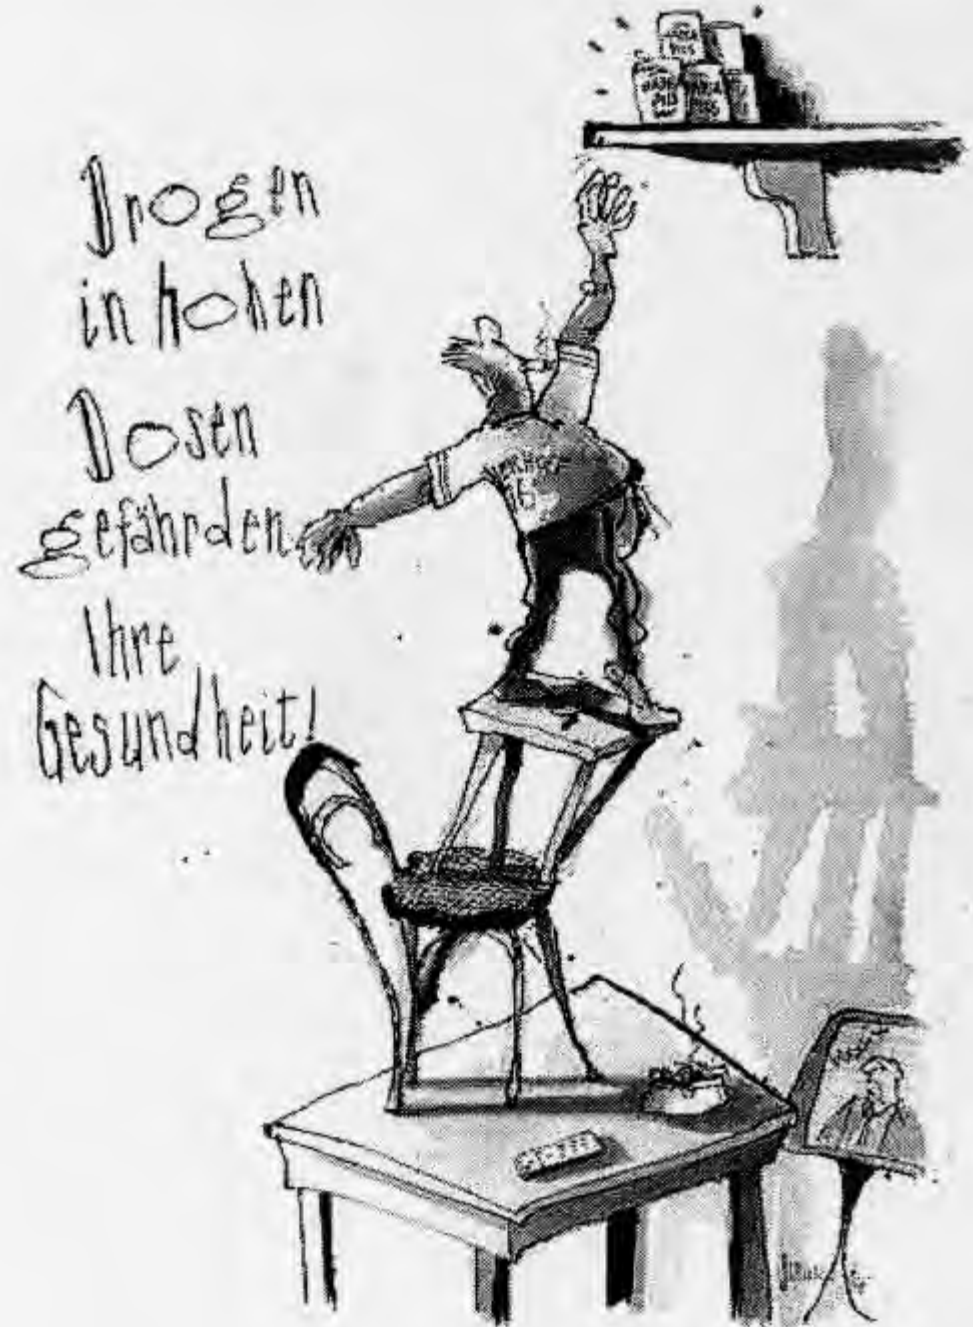 Drogen
in hohen
Dosen
gefährden
Ihre
Gesundheit!